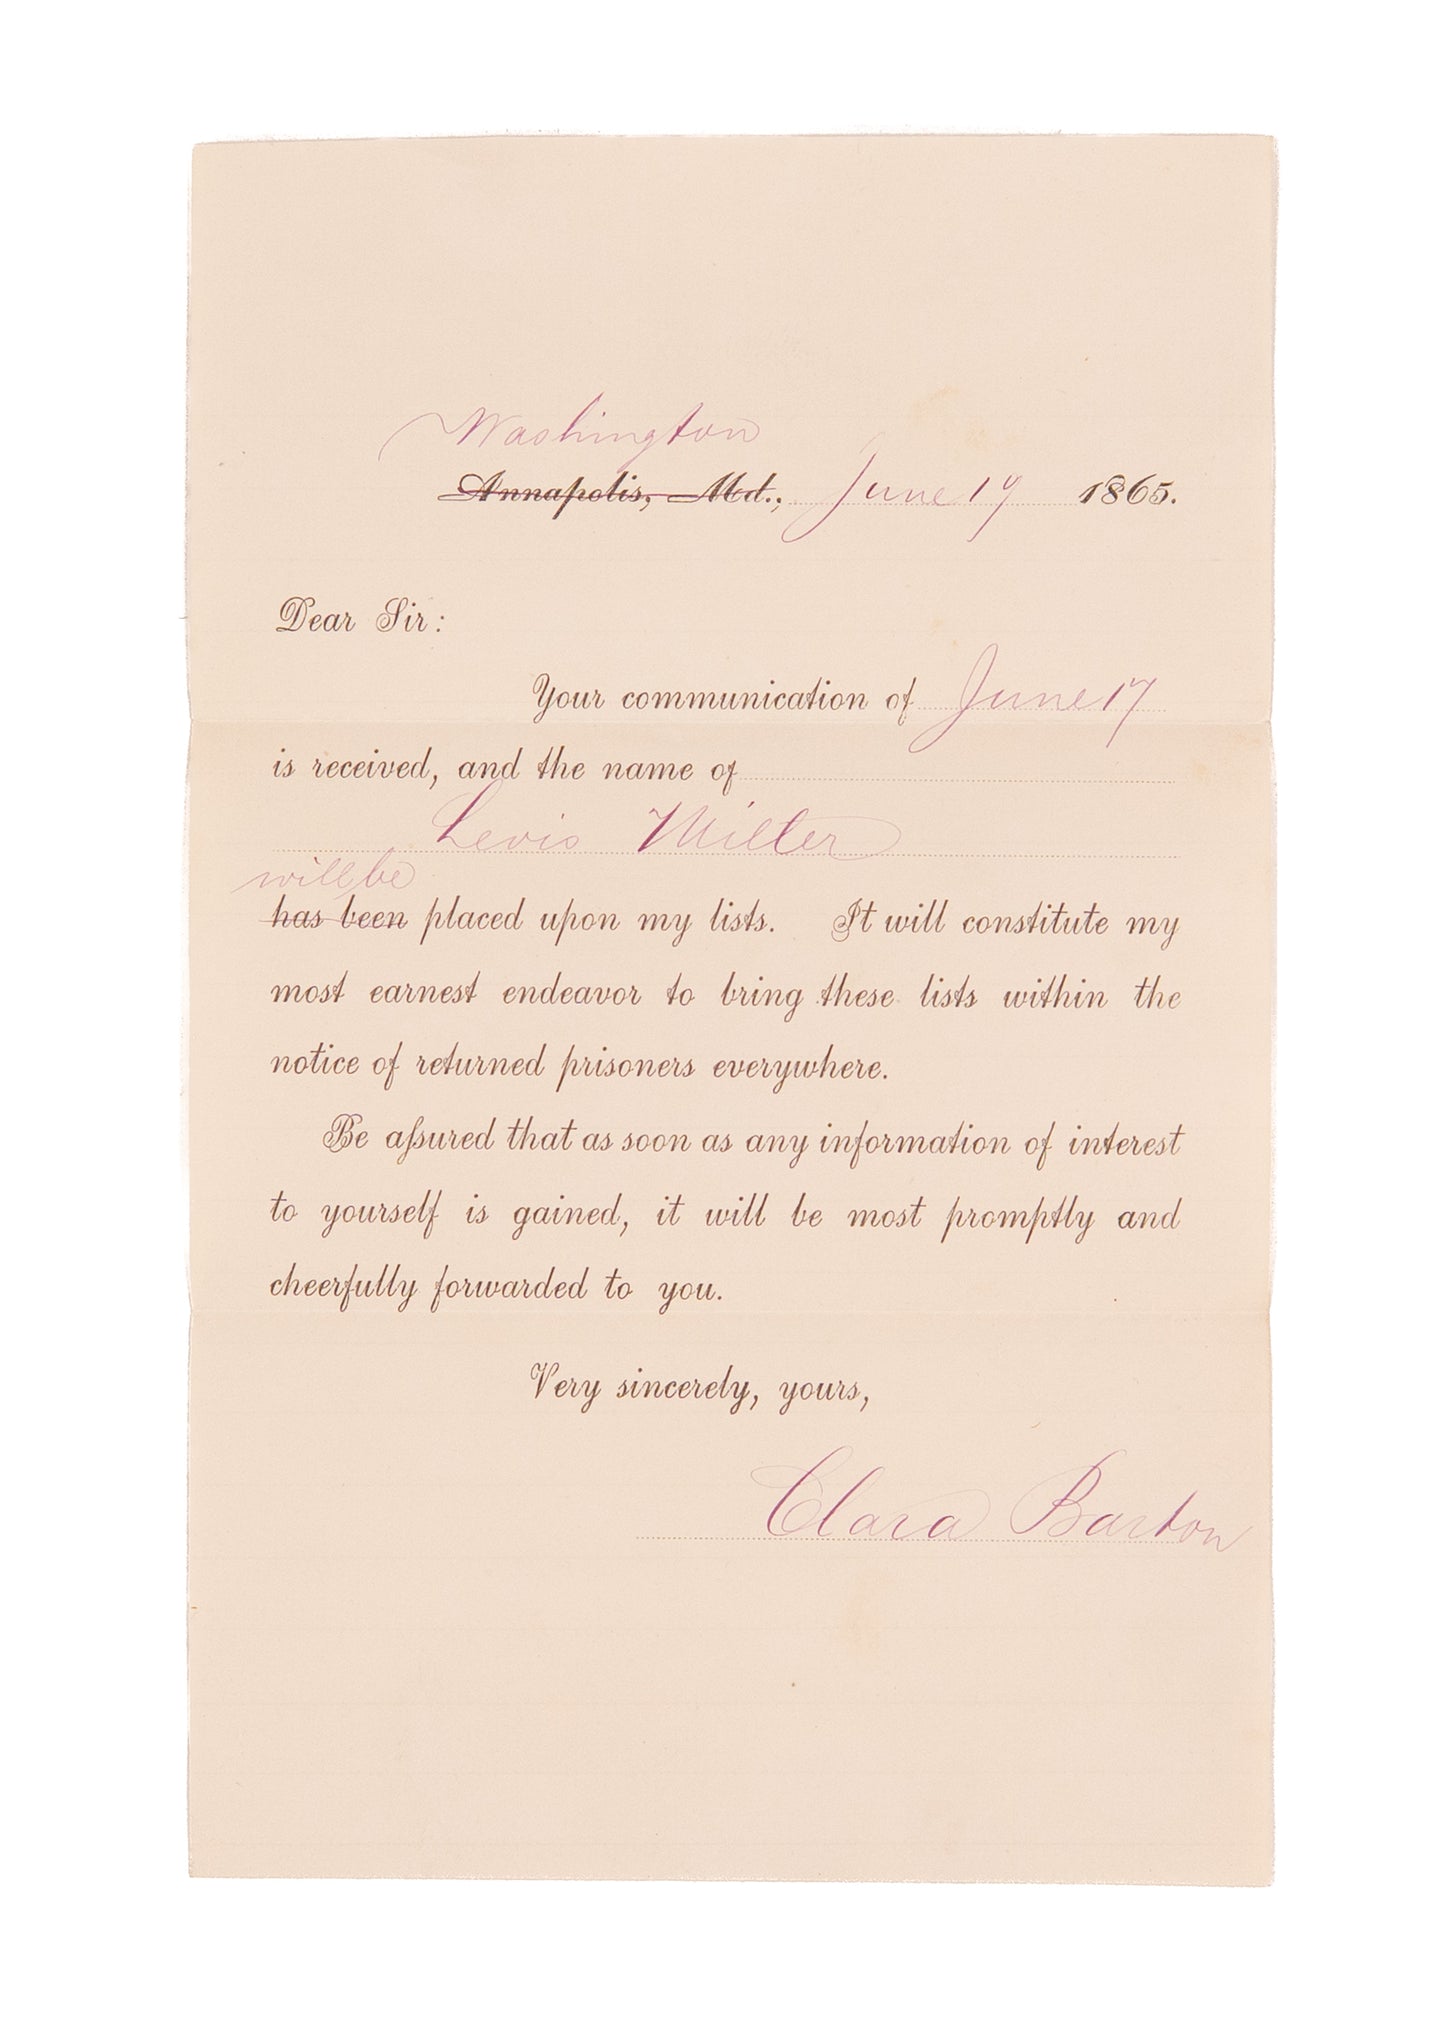 Washington
Annapolis, Md., June 19 1865.
Dear Sir:
Your communication of June 17
is received, and the name of
Levis Miller
will be
has been placed upon my lists. It will constitute my
most earnest endeavor to bring these lists within the
notice of returned prisoners everywhere.
Be aſsured that as soon as any information of interest
to yourself is gained, it will be most promptly and
cheerfully forwarded to you.
Very sincerely, yours,
Clara Barton